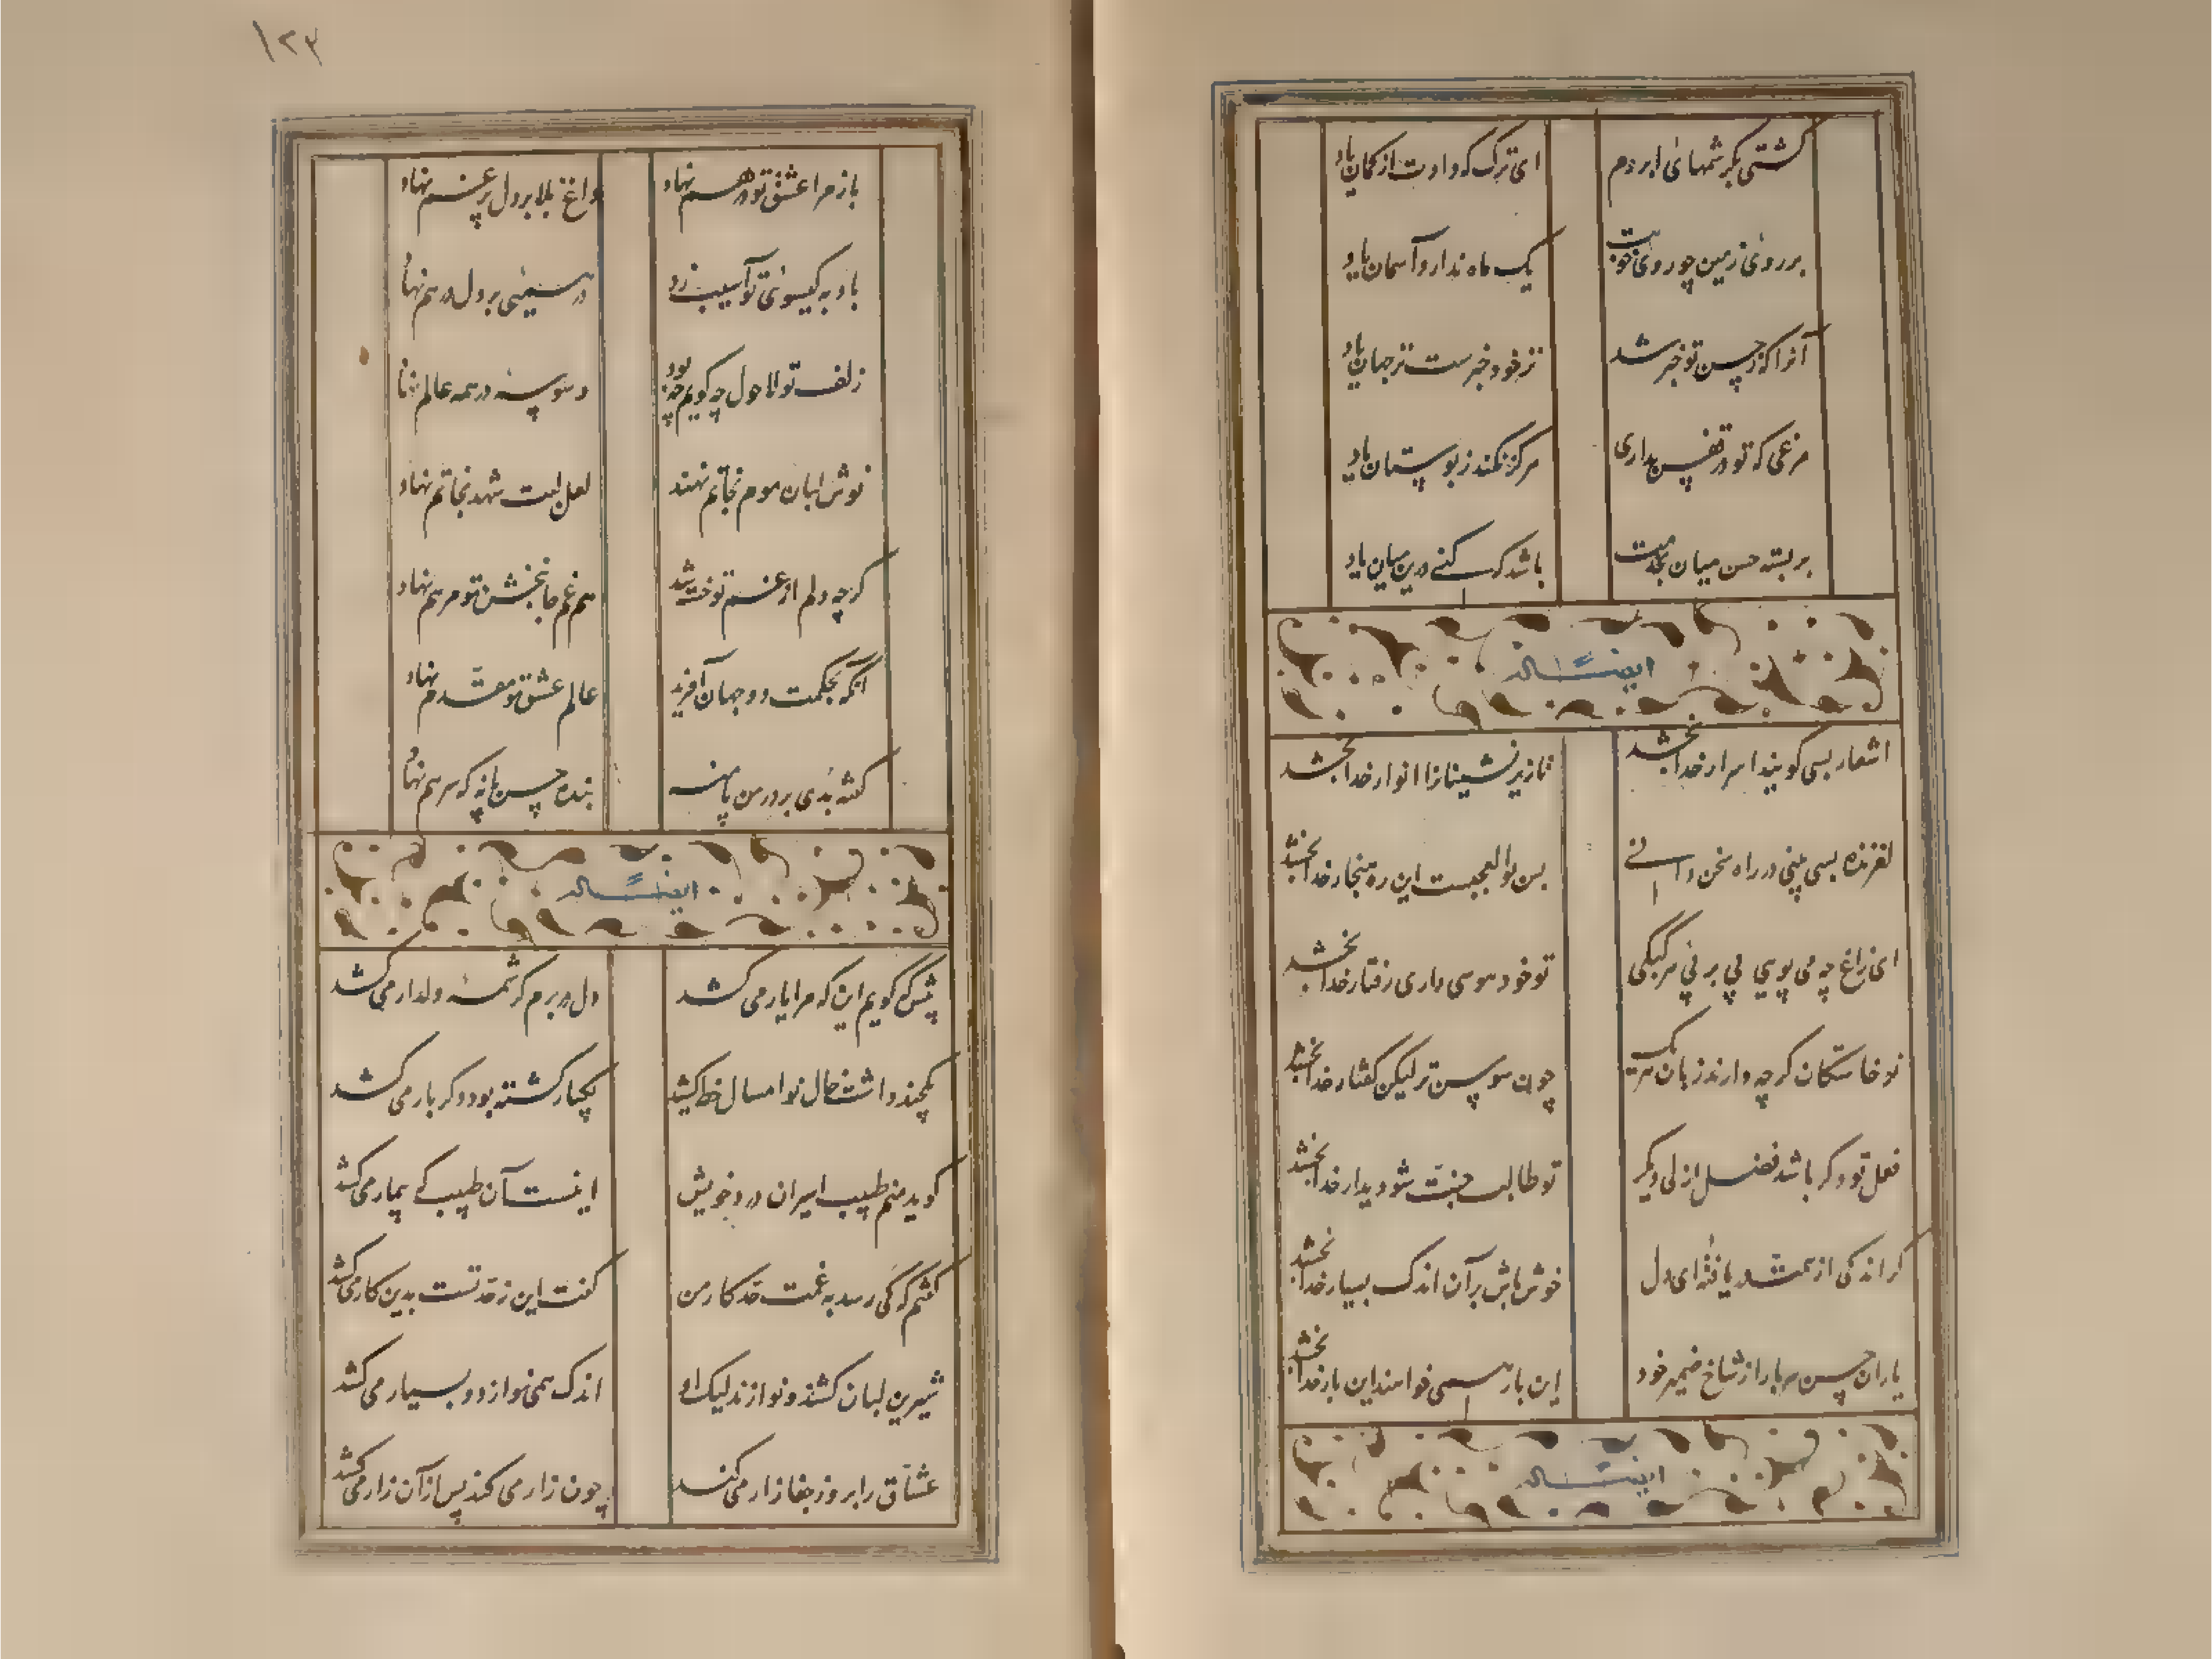 کشتی بکرشمهای ابرو دم ای ترک که دادت از کمان یاد
بر روی زمین چو روی خوبت یک ماه ندارد آسمان یاد
آنرا که ز حسن تو خبر شد نز خود خبرست نز جهان یاد
مرغی که تو در قفس بداری هرگز نکند ز بوستان یاد
بر بسته حسن میان بخدمت باشد که کنی درین میان یاد
ایضاً له
اشعار بسی گویند اسرار خدا بخشد نازیر نشینانرا انوار خدا بخشد
لغزنده بسی بینی در راه سخن دانی بس بوالعجبست این ره هنجار خدا بخشد
ای زاغ چه می پویی پی بر پی هر کبکی تو خود هوسی داری رفتار خدا بخشد
نوخاستگان گرچه دارند زبان هریک چون سوسن تر لیکن گفتار خدا بخشد
فعل تو دگر باشد فضل ازلی دیگر تو طالب جنت شو دیدار خدا بخشد
گر اندکی از همت در یافته‌ای دل خوش باش بر آن اندک بسیار خدا بخشد
یاران حسن هر بار از شاخ ضمیر خود این بار همی خواهند این بار خدا بخشد
ایضاً له
۱۲۳
باز مرا عشق تو در هم نهاد داغ بلا بر دل پر غم نهاد
باد به گیسوی تو آسیب زد در هم سیمی بر دل درهم نهاد
زلف تو لاحول چه گویم چه بود وسوسه در همه عالم نهاد
نوش لبان موم نجاتم نهند لعل لبت شهد نجاتم نهاد
گرچه دلم از غم تو خسته شد هم غم جانبخش تو مرهم نهاد
آنکه بحکمت دو جهان آفرید عالم عشق تو مقدم نهاد
گفته بدی بر در من پا منه بنده حسن پا نه که سر هم نهاد
ایضاً له
پیش که گویم این که مرا یار می کشد دل در برم کرشمه دلدار می کشد
یکچند داشت خال نو امسال خط کشید یکبار کشته بود و دگر بار می کشد
گوید منم طبیب اسیران درد خویش اینست آن طبیب که بیمار می کشد
گفتم که کی رسد به غمت خد کار من گفت این ز خد تست بدین کار می کشد
شیرین لبان کشند و نوازند لیک او اندک همی نوازد و بسیار می کشد
عشاق را بروز جفا زار می کند چون زار می کند پس از آن زار می کشد